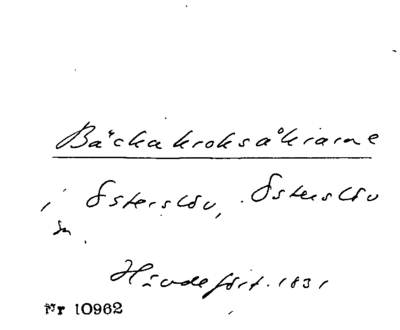 Bäckakroksåkrarne
i Österslöv, Österslöv
sn.
Händefört. 1831
Nr 10962